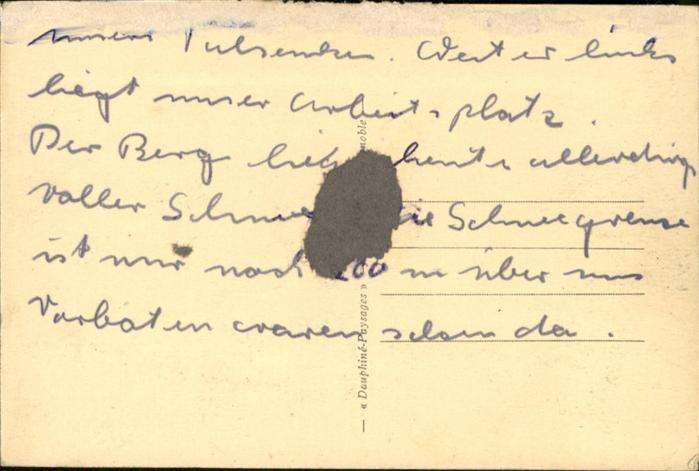 unsere . Weiter links
liegt unser Arbeitsplatz.
Der Berg heute allerdings
voller Schnee die Schneegrenze
ist nur noch 200 m über uns
Vorboten waren schon da.
— « Dauphiné-Paysages » noble